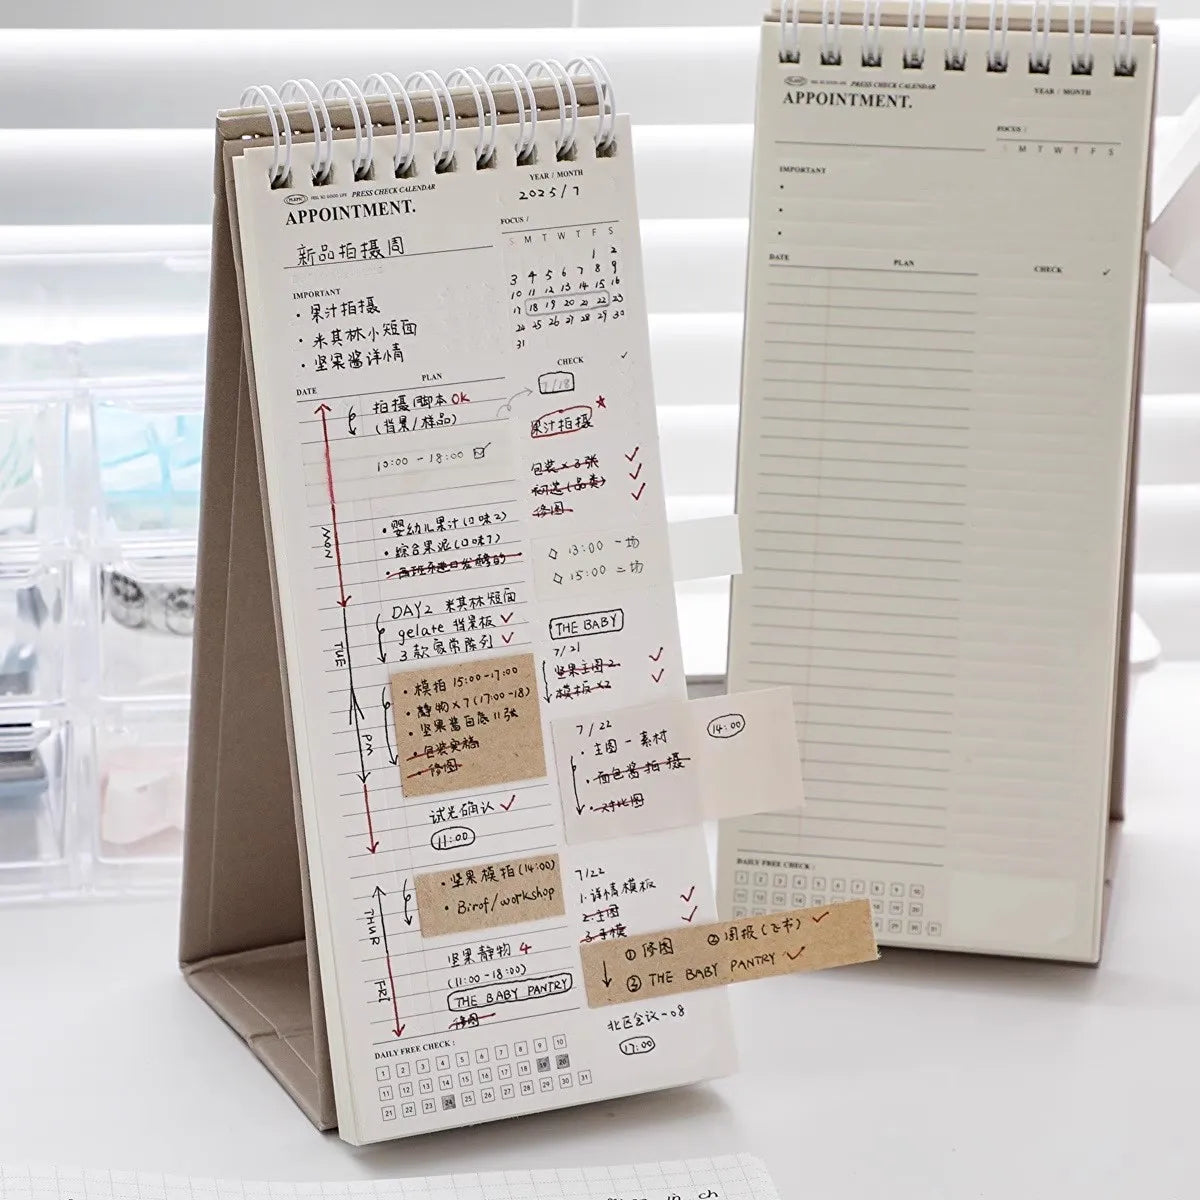 PRESS CHECK CALENDAR
APPOINTMENT.
新品拍摄周
YEAR / MONTH
2025/7
FOCUS /
S M T W T F S
1 2
3 4 5 6 7 8 9
10 11 12 13 14 15 16
17 18 19 20 21 22 23
24 25 26 27 28 29 30
31
IMPORTANT
· 果汁拍摄
· 米其林小短面
· 坚果酱详情
DATE
PLAN
CHECK ✓
拍摄脚本OK
(背果/样品)
10:00 - 18:00
MON
· 婴幼儿果汁(口味2)
· 综合果泥(口味7)
DAY2 米其林短面
gelate 背果板 ✓
3款家常陈列 ✓
TUE
PM
· 模拍 15:00-17:00
· 静物×7(17:00-18)
· 坚果酱白底11张
· 包装实稿
· 修图
试光确认 ✓
11:00
THUR
FRI
· 坚果模拍(14:00)
· Birof/workshop
坚果静物 4
(11:00-18:00)
THE BABY PANTRY
修图
7/18
果汁拍摄
包装×3张 ✓
初选(品类) ✓
修图 ✓
◇ 13:00 一场
◇ 15:00 二场
THE BABY
7/21
坚果主图2 ✓
模板×2 ✓
7/22
· 主图-素材
· 面包酱拍摄
· 对比图
14:00
7/22
1.详情模板 ✓
2.主图 ✓
3.手模
① 修图 ② 周报(飞书) ✓
③ THE BABY PANTRY ✓
北区会议-08
17:00
DAILY FREE CHECK :
1 2 3 4 5 6 7 8 9 10
11 12 13 14 15 16 17 18 19 20
21 22 23 24 25 26 27 28 29 30 31
PRESS CHECK CALENDAR
APPOINTMENT.
YEAR / MONTH
FOCUS /
S M T W T F S
IMPORTANT
DATE
PLAN
CHECK ✓
DAILY FREE CHECK :
1 2 3 4 5 6 7 8 9 10